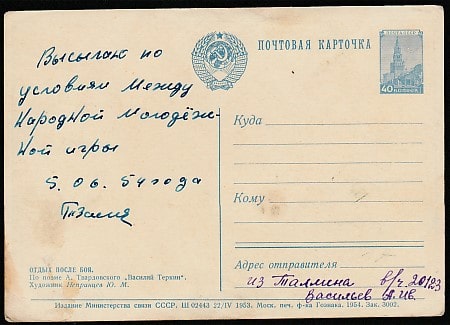 Высылаю по
условиям Между
Народной Молодёж-
ной игры
5. 06. 54 года
ОТДЫХ ПОСЛЕ БОЯ.
По поэме А. Твардовского „Василий Теркин".
Художник Непринцев Ю. М.
ПОЧТОВАЯ КАРТОЧКА
ПОЧТА СССР
40 КОПЕЕК
Куда
Кому
Адрес отправителя
из Таллина в/ч 20123
Васильев
Издание Министерства связи СССР, Ш 02443 22/IV 1953. Моск. печ. ф-ка Гознака. 1954. Зак. 3002.